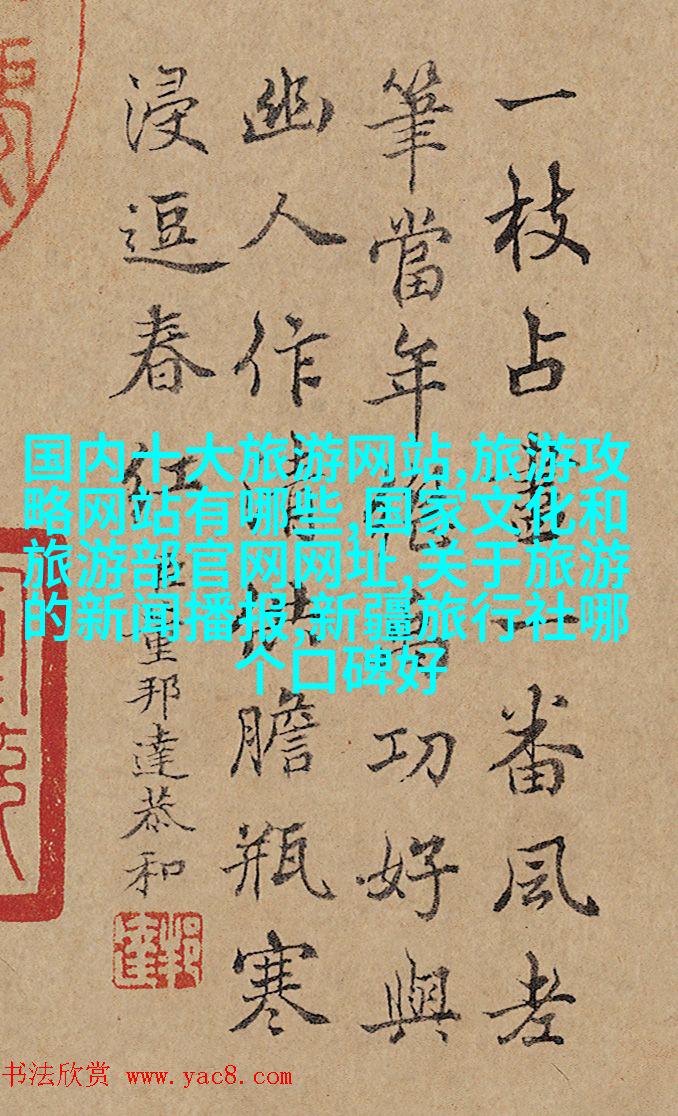 一枝占盡一番風老
筆當年功好與
幽人作清供膽瓶寒
浸逗春紅
臣董邦達恭和
国内十大旅游网站,旅游攻
略网站有哪些,国家文化和
旅游部官网网址,关于旅游
的新闻播报,新疆旅行社哪
个口碑好
书法欣赏 www.yac8.com